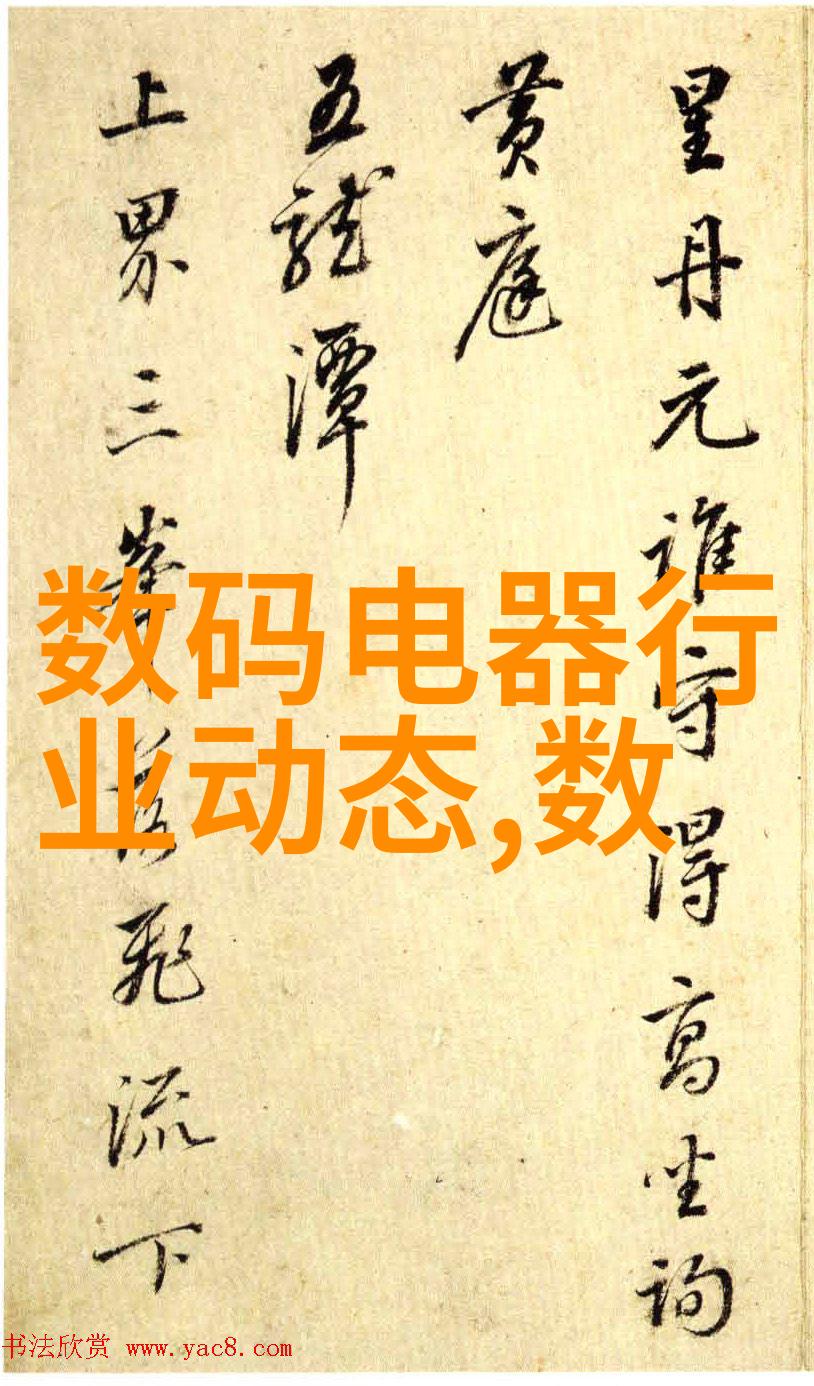 星丹元誰守得高坐詢
黄庭
五龍潭
上界三峯落飛流下
数码电器行
业动态,数
书法欣赏 www.yac8.com